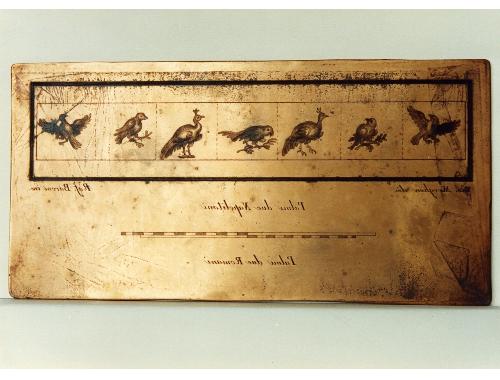 Raf. Baroni inc.
Morghen
Palmi due Napoletani
Palmi due Romani